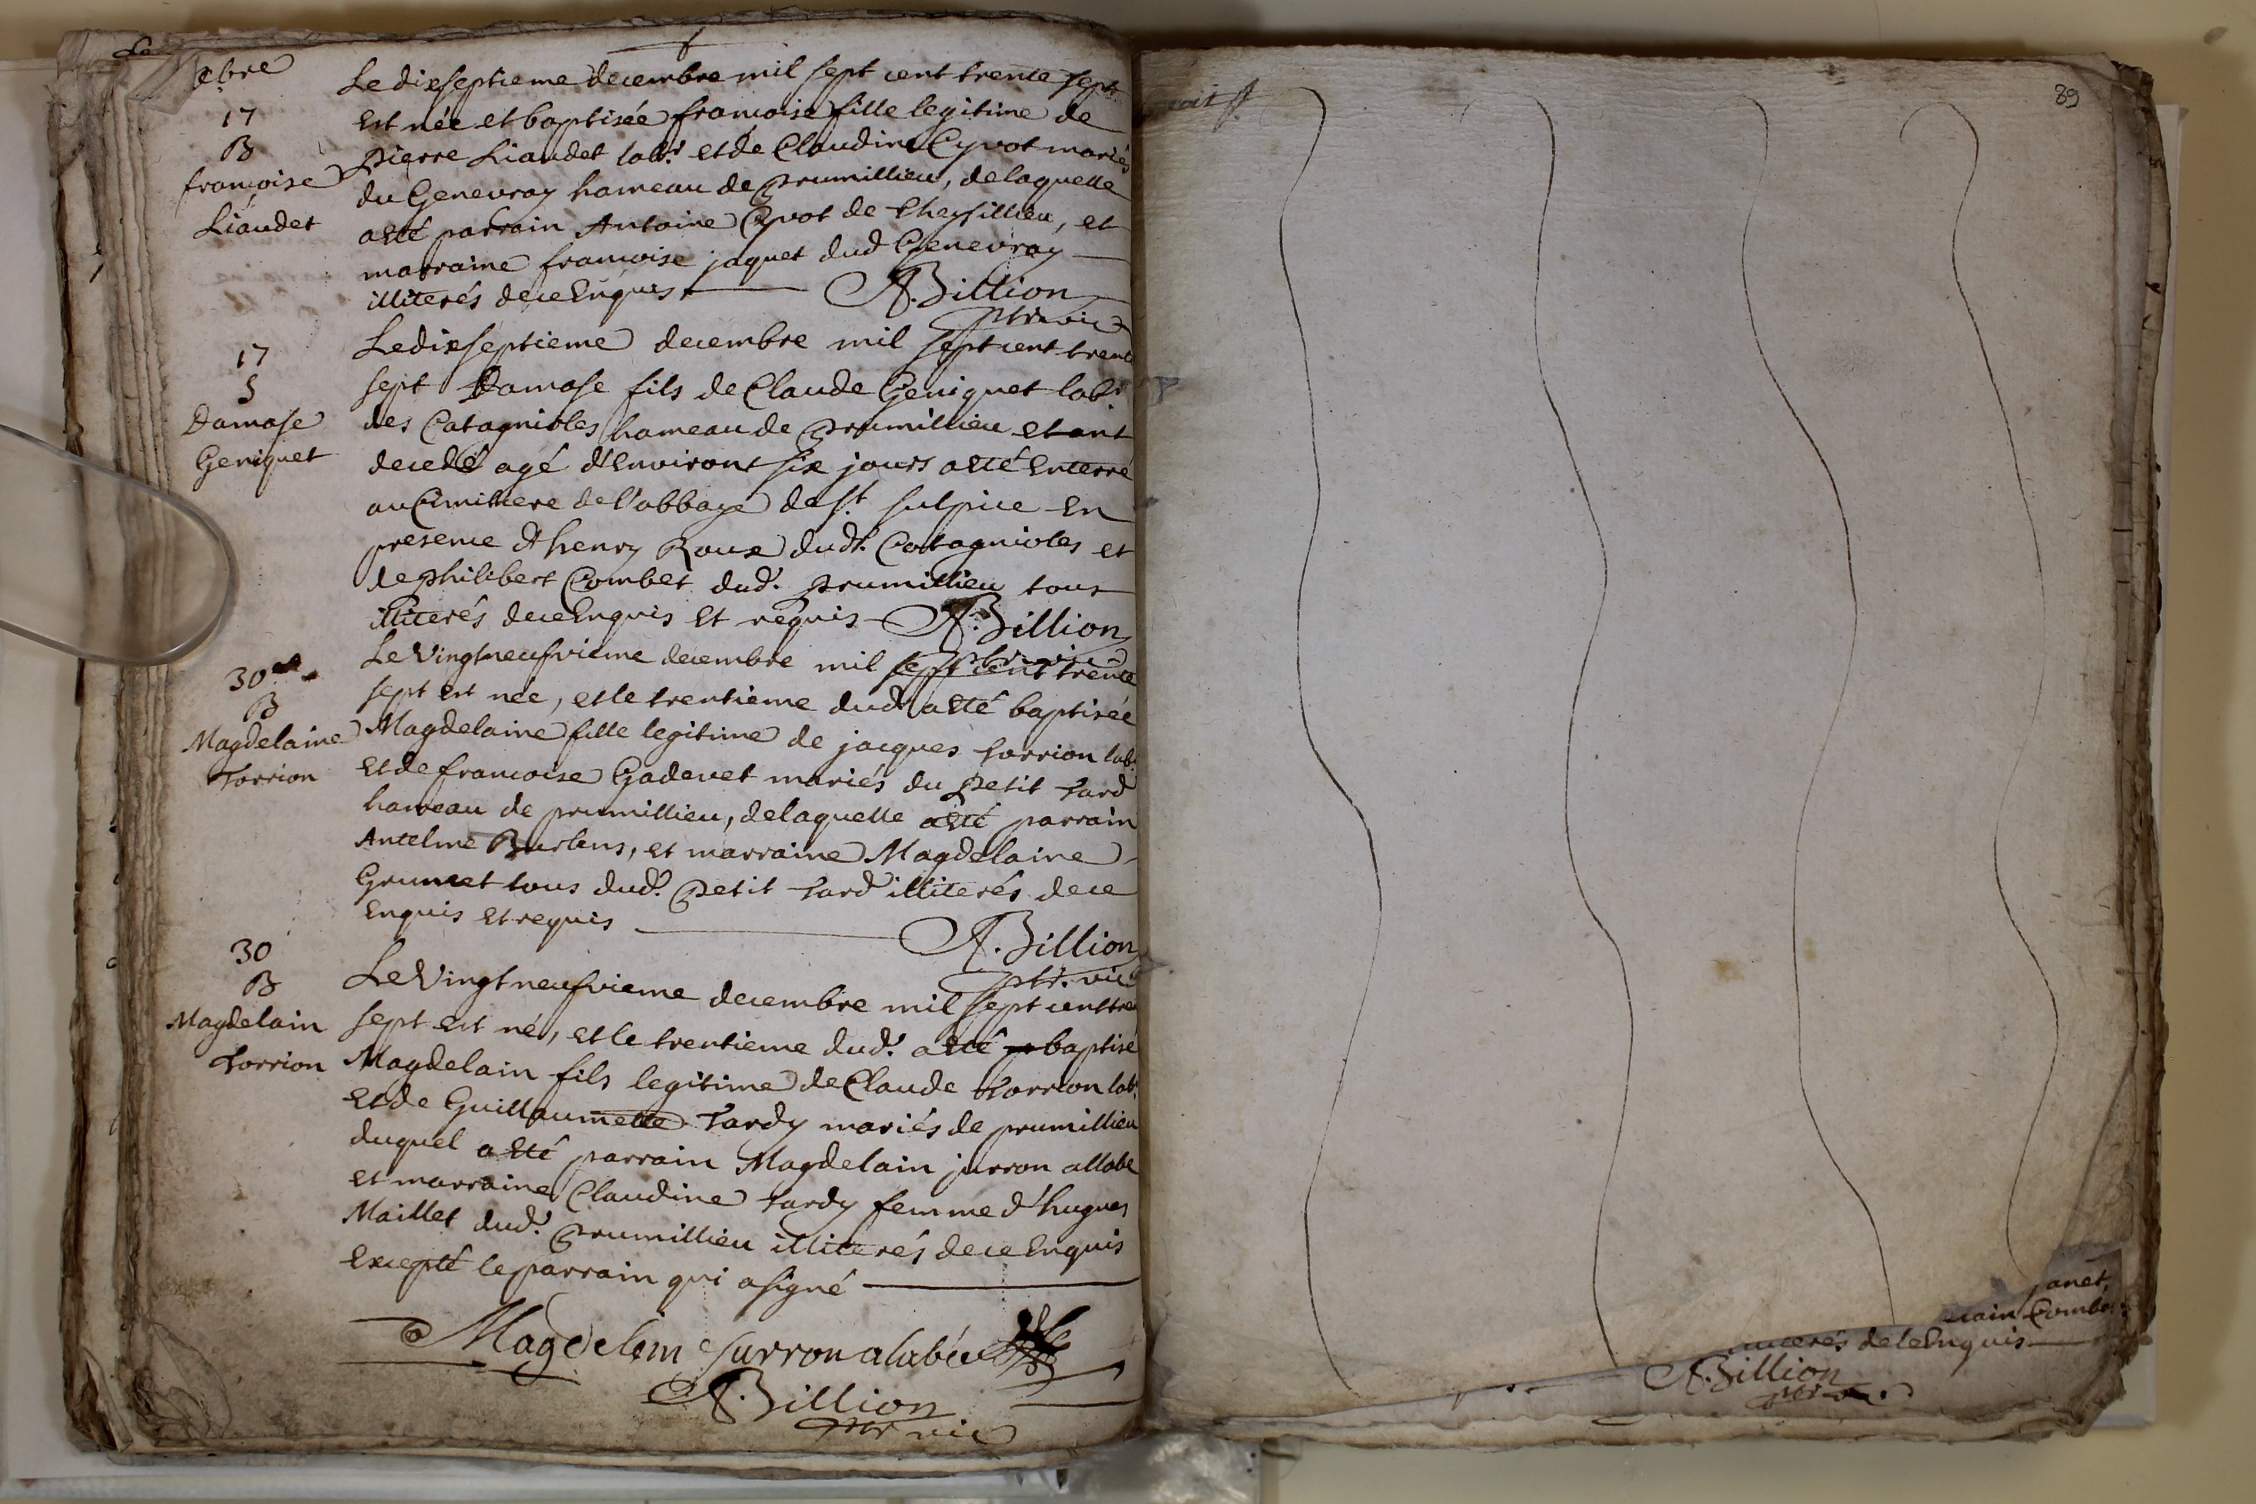 xbre
17
B
françoise
Liaudet
Le dixseptieme decembre mil sept cent trente sept
est née et baptisée francoise fille legitime de
Pierre Liaudet labr. et de Claudine Cyvot mariés
du Genevray hameau de Prumillieu, delaquelle
a eté parrain Antoine Cyvot de Cheysillieu, et
marraine francoise jaquet dud Genevray
illiterés de ce Enquis
A. Billion
ptre vic
17
S
Damase
Geniquet
Le dixseptieme decembre mil sept cent trente
sept Damase fils de Claude Geniquet labr
des Catagnioles hameau de Prumillieu etant
decedé agé d'Environt six jours a eté Enterré
au Cimitiere de l'abbaye de st. sulpice En
presence d'henry Roux dudt. Catagnioles et
de Philibert Combet dud. Prumillieu tous
illiterés de ce Enquis Et requis
A. Billion
ptre vic
30
B
Magdelaine
Torrion
Le Vingtneufvieme decembre mil sept cent trente
sept est née, et le trentieme dud. a eté baptisée
Magdelaine fille legitime de jacques Torrion labr.
Et de francoise Gadenet mariés du Petit Tard
hameau de prumillieu, delaquelle a eté parrain
Antelme Burlens, et marraine Magdelaine
Grumet tous dud. Petit Tard illiterés de ce
Enquis et requis
A. Billion
ptr. vic
30
B
Magdelain
Torrion
Le Vingtneufvieme decembre mil sept cent tre
sept est né, et le trentieme dud. a eté baptisé
Magdelain fils legitime de Claude Torrion labr.
Et de Guillaumette Tardy mariés de prumillieu
duquel a eté parrain Magdelain jurron allabe
et marraine Claudine Tardy femme d'hugues
Maillet dud. Prumillieu illiterés de ce Enquis
Excepté le parrain qui a signé
Magdelain jurron alabée
A. Billion
ptr vic
89
janet,
Combet
de ce Enquis
A. Billion